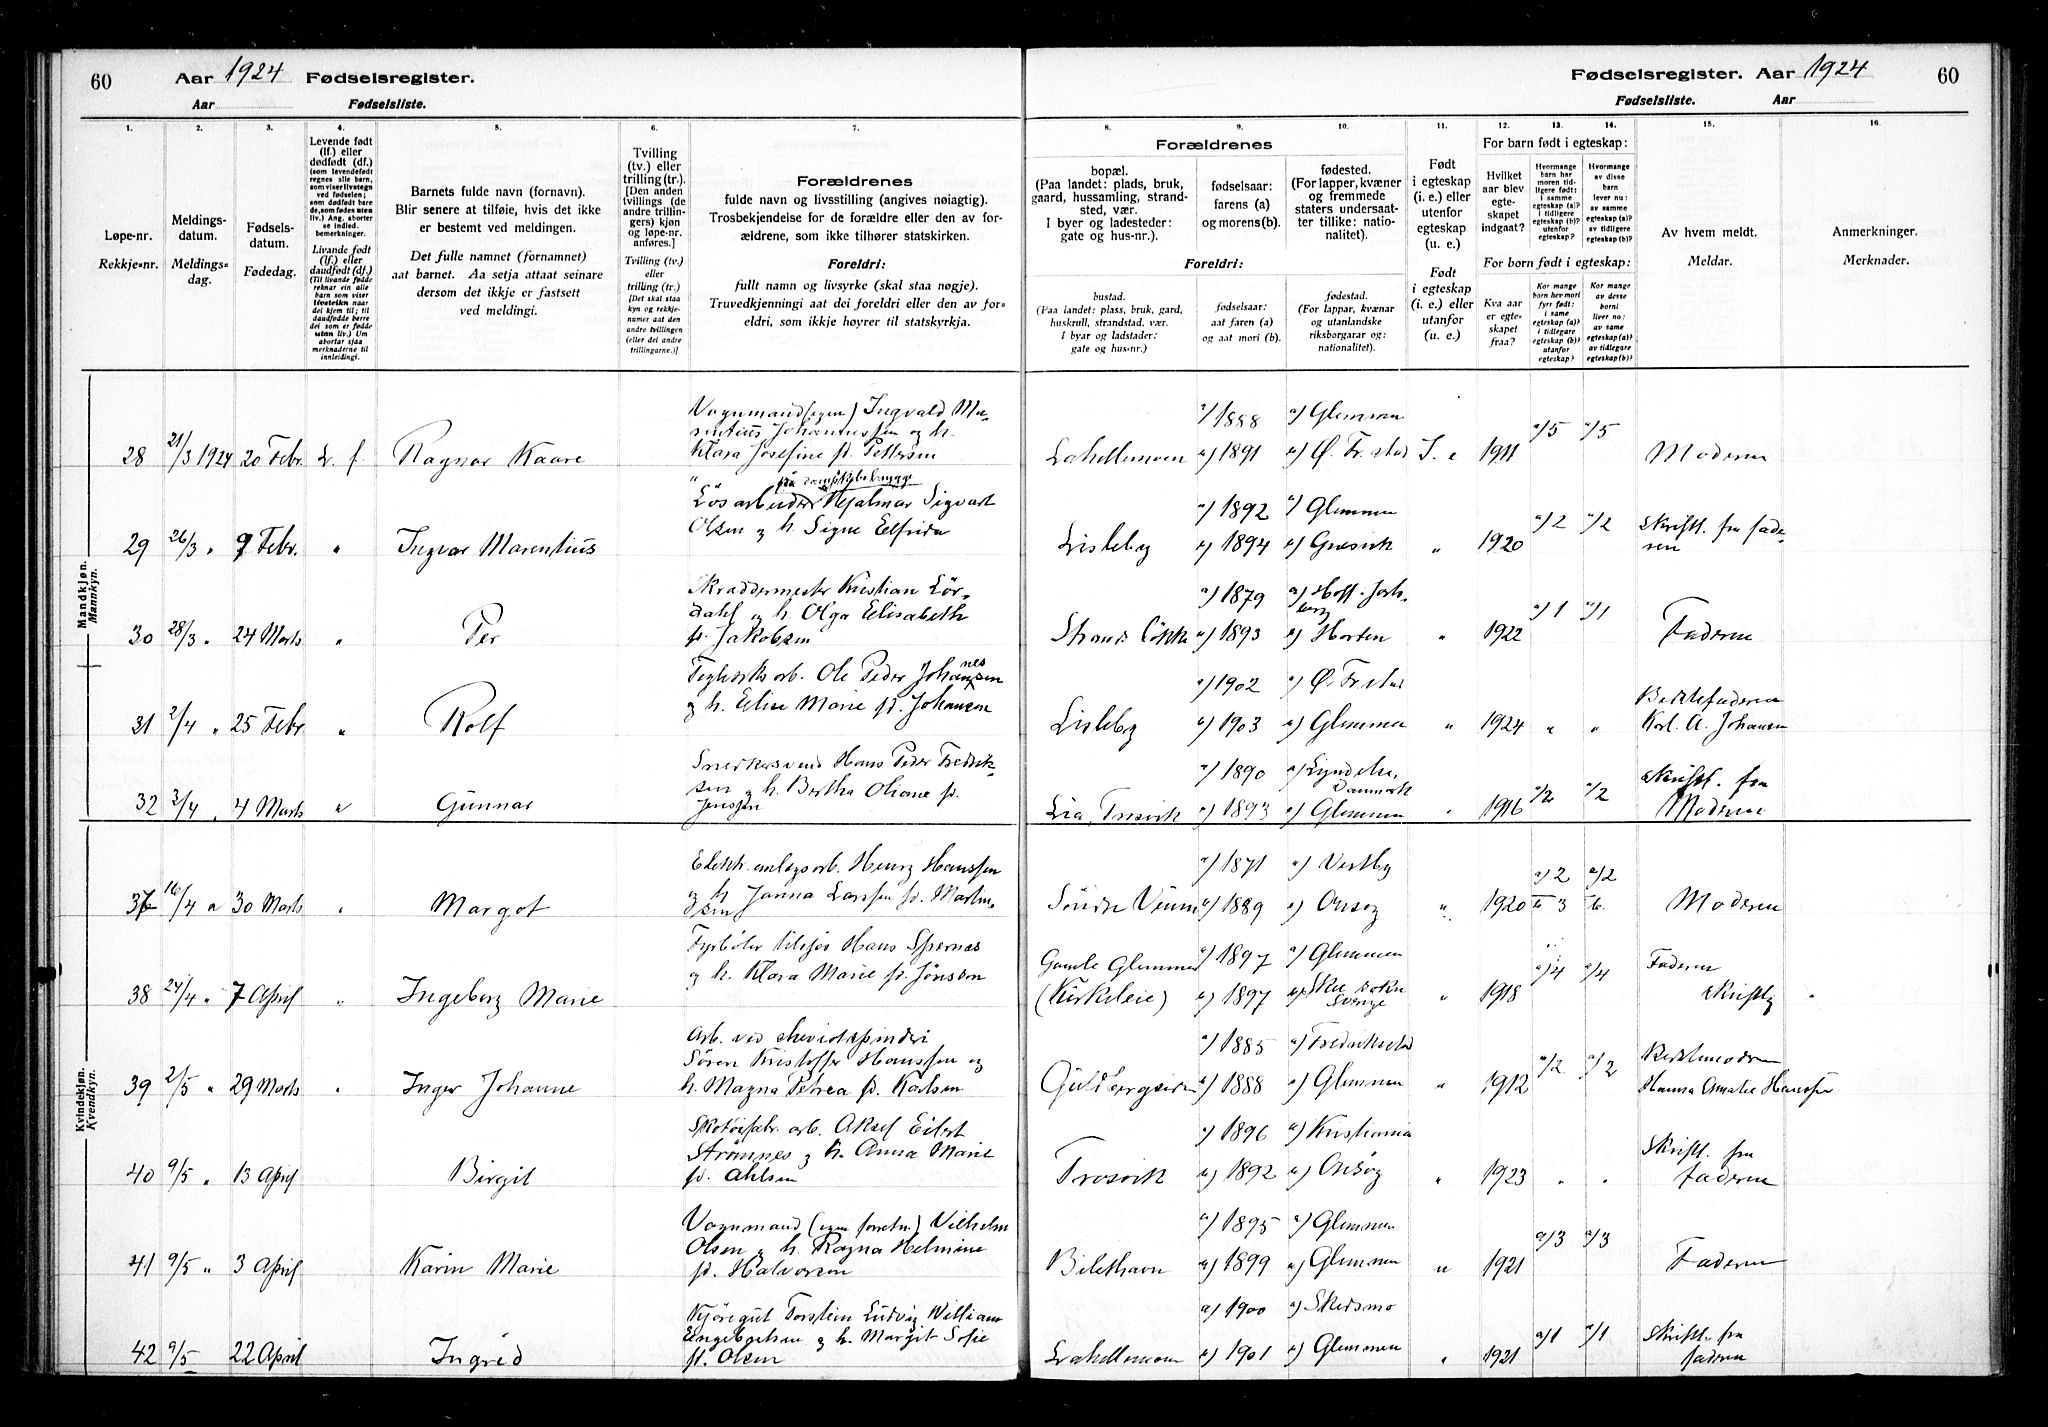 60 Aar 1924 Fødselsregister.
Aar Fødselsliste.
Fødselsregister. Aar 1924 60
Fødselsliste. Aar
1.
Løpe-nr.
Rekkje-nr.
2.
Meldings-
datum.
Meldings-
dag.
3.
Fødsels-
datum.
Fødedag.
4.
Levende født
(lf.) eller
dødfødt (df.)
(som levendefødt
regnes alle barn,
som viser livstegn
ved fødselen;
som dødfødt bare
de, som fødes uten
liv.) Ang. aborter
se indled.
bemerkninger.
Livande født
(lf.) eller
daudfødt (df.)
(Til livande fødde
reknar ein alle
barn som viser
livsteikn naar
dei kjem til; til
daudfødde berre
dei som er fødde
utan liv.) Um
abortar sjaa
merknaderne til
innleiding.
5.
Barnets fulde navn (fornavn).
Blir senere at tilføie, hvis det ikke
er bestemt ved meldingen.
Det fulle namnet (fornamnet)
aat barnet. Aa setja attaat seinare
dersom det ikkje er fastsett
ved meldingi.
6.
Tvilling
(tv.) eller
trilling (tr.).
[Den anden
tvillings (de
andre trillin-
gers) kjøn
og løpe-nr.
anføres.]
Tvilling (tv.)
eller
trilling (tr.)
[Det skal staa
kyn og rekkje-
numer aat den
andre tvillingen
(eller dei andre
trillingarne.)]
7.
Forældrenes
fulde navn og livsstilling (angives nøiagtig).
Trosbekjendelse for de forældre eller den av for-
ældrene, som ikke tilhører statskirken.
Foreldri:
fullt namn og livsyrke (skal staa nøgje).
Truvedkjenningi aat dei foreldri eller den av for-
eldri, som ikkje høyrer til statskyrkja.
Forældrenes
8.
bopæl.
(Paa landet: plads, bruk,
gaard, hussamling, strand-
sted, vær.
I byer og ladesteder:
gate og hus-nr.).
Foreldri:
bustad.
(Paa landet: plass, bruk, gard,
huskrull, strandstad, vær.
I byar og ladstader:
gate og hus-nr.)
9.
fødselsaar:
farens (a)
og morens (b).
fødselsaar:
aat faren (a)
og aat mori (b).
10.
fødested.
(For lapper, kvæner
og fremmede
staters undersaat-
ter tillike: natio-
nalitet).
fødestad.
(For lappar, kvænar
og utanlandske
riksborgarar og:
nationalitet).
11.
Født
i egteskap
(i. e.) eller
utenfor
egteskap
(u. e.)
Født
i egteskap
(i. e.) eller
utanfor
(u. e.)
For barn født i egteskap:
12.
Hvilket
aar blev
egte-
skapet
indgaat?
For born født i egteskap:
Kva aar
er egte-
skapet
fraa?
13.
Hvormange
barn har
moren tid-
ligere født:
i samme
egteskap (a)?
i tidligere
egteskap (b)?
utenfor
egteskap?
Kor mange
born hev mori
fyrr født:
i same
egteskap (a)?
i tidlegare
egteskap (b)?
utanfor
egteskap?
14.
Hvormange
av disse
barn
lever nu:
av samme
egteskap (a)?
av tidligere
egteskap (b)?
Kor mange
av desse
born
liver no:
av same
egteskap (a)?
av tidlegare
egteskap (b)?
15.
Av hvem meldt.
Meldar.
16.
Anmerkninger.
Merknader.
Mandkjøn.
Mannkyn.
28 21/3 1924 20 Febr. L. f. Ragnar Kaare
Vognmand (egen) Ingvald Ma-
rentius Johannessen og h.
Klara Josefine f. Pettersen
Lahellemoen a) 1888 b) 1891 a) Glemmen b) Ø. Fr.stad I. e 1911 a/5 a/5 Moderen
29 26/3 " 9 Febr. " Ingvar Marentius
på dampskibsbrygge
Løsarbeider Hjalmar Sigvart
Olsen og h. Signe Elfrida
Lisleby a) 1892 b) 1894 a) Glemmen b) Græsvik " 1920 a/2 a/2 Skriftl. fra fade-
ren
30 28/3 " 24 Marts " Per
Skræddermester Kristian Lør-
dahl og h. Olga Elisabeth
f. Jakobsen
a) 1879 b) 1893 b) Horten " 1922 a/1 a/1 Faderen
31 2/4 " 25 Febr " Rolf
Teglverksarb. Ole Peder Johannessen
og h. Elise Marie f. Johansen
Lisleby a) 1902 b) 1903 a) Ø. Fr.stad b) Glemmen " 1924 " " Bestefaderen
Karl A. Johansen
32 3/4 " 4 Marts " Gunnar
Snedkersvend Hans Peder Fredrik-
sen og h. Bertha Oliane f.
Jenssen
Lia, Trosvik a) 1890 b) 1893 a) Lyndelse,
Danmark
b) Glemmen " 1916 a/2 a/2 Skriftl. fra
Moderen
Kvindekjøn.
Kvendkyn.
37 16/4 " 30 Marts " Margot
Elektr. anlegsarb. Henry Hanssen
og h. Janna Larssen f. Martin-
sen
a) 1871 b) 1889 a) Vestby b) Onsøy " 1920 a) 2 b 3 a) 2 Moderen
38 24/4 " 7 April " Ingeborg Marie
Fyrbøter tilsjøs Hans Spernæs
og h. Klara Marie f. Jonsson
Gamle Glemmen
(Kirkeleie) a) 1897 b) 1897 a) Glemmen
Sverige " 1918 a/4 a/4 Faderen
skriftlig
39 2/5 " 29 Marts " Inger Johanne
Arb. ved cheviotspinderi
Søren Kristoffer Hanssen og
h. Magna Petrea f. Karlsen
Guldbergsiden a) 1885 b) 1888 a) Fredrikstad b) Glemmen " 1912 a/2 a/2 Bestemoderen
Hanna Amalie Hanssen
40 9/5 " 13 April Birgit
Skotøifabr. arb. Aksel Eilert
Strømnes og h. Anna Marie
f. Ahlsen
Trosvik a) 1896 b) 1892 a) Kristiania b) Onsøy " 1923 " " Skriftl. fra
faderen
41 9/5 " 3 April Karin Marie
Vognmand (egen forretn.) Vilhelm
Olsen og h. Ragna Helmine
f. Halvorsen
Bilethavn a) 1895 b) 1899 a) Glemmen b) Glemmen " 1921 a/3 a/3 Faderen
42 9/5 22 April Ingrid
Kjøregut Torstein Ludvig William
Engebretsen og h. Margit Sofie
f. Olsen
Lahellemoen a) 1900 b) 1901 a) Skedsmo b) Glemmen " 1921 a/1 a/1 Skriftl. fra
faderen